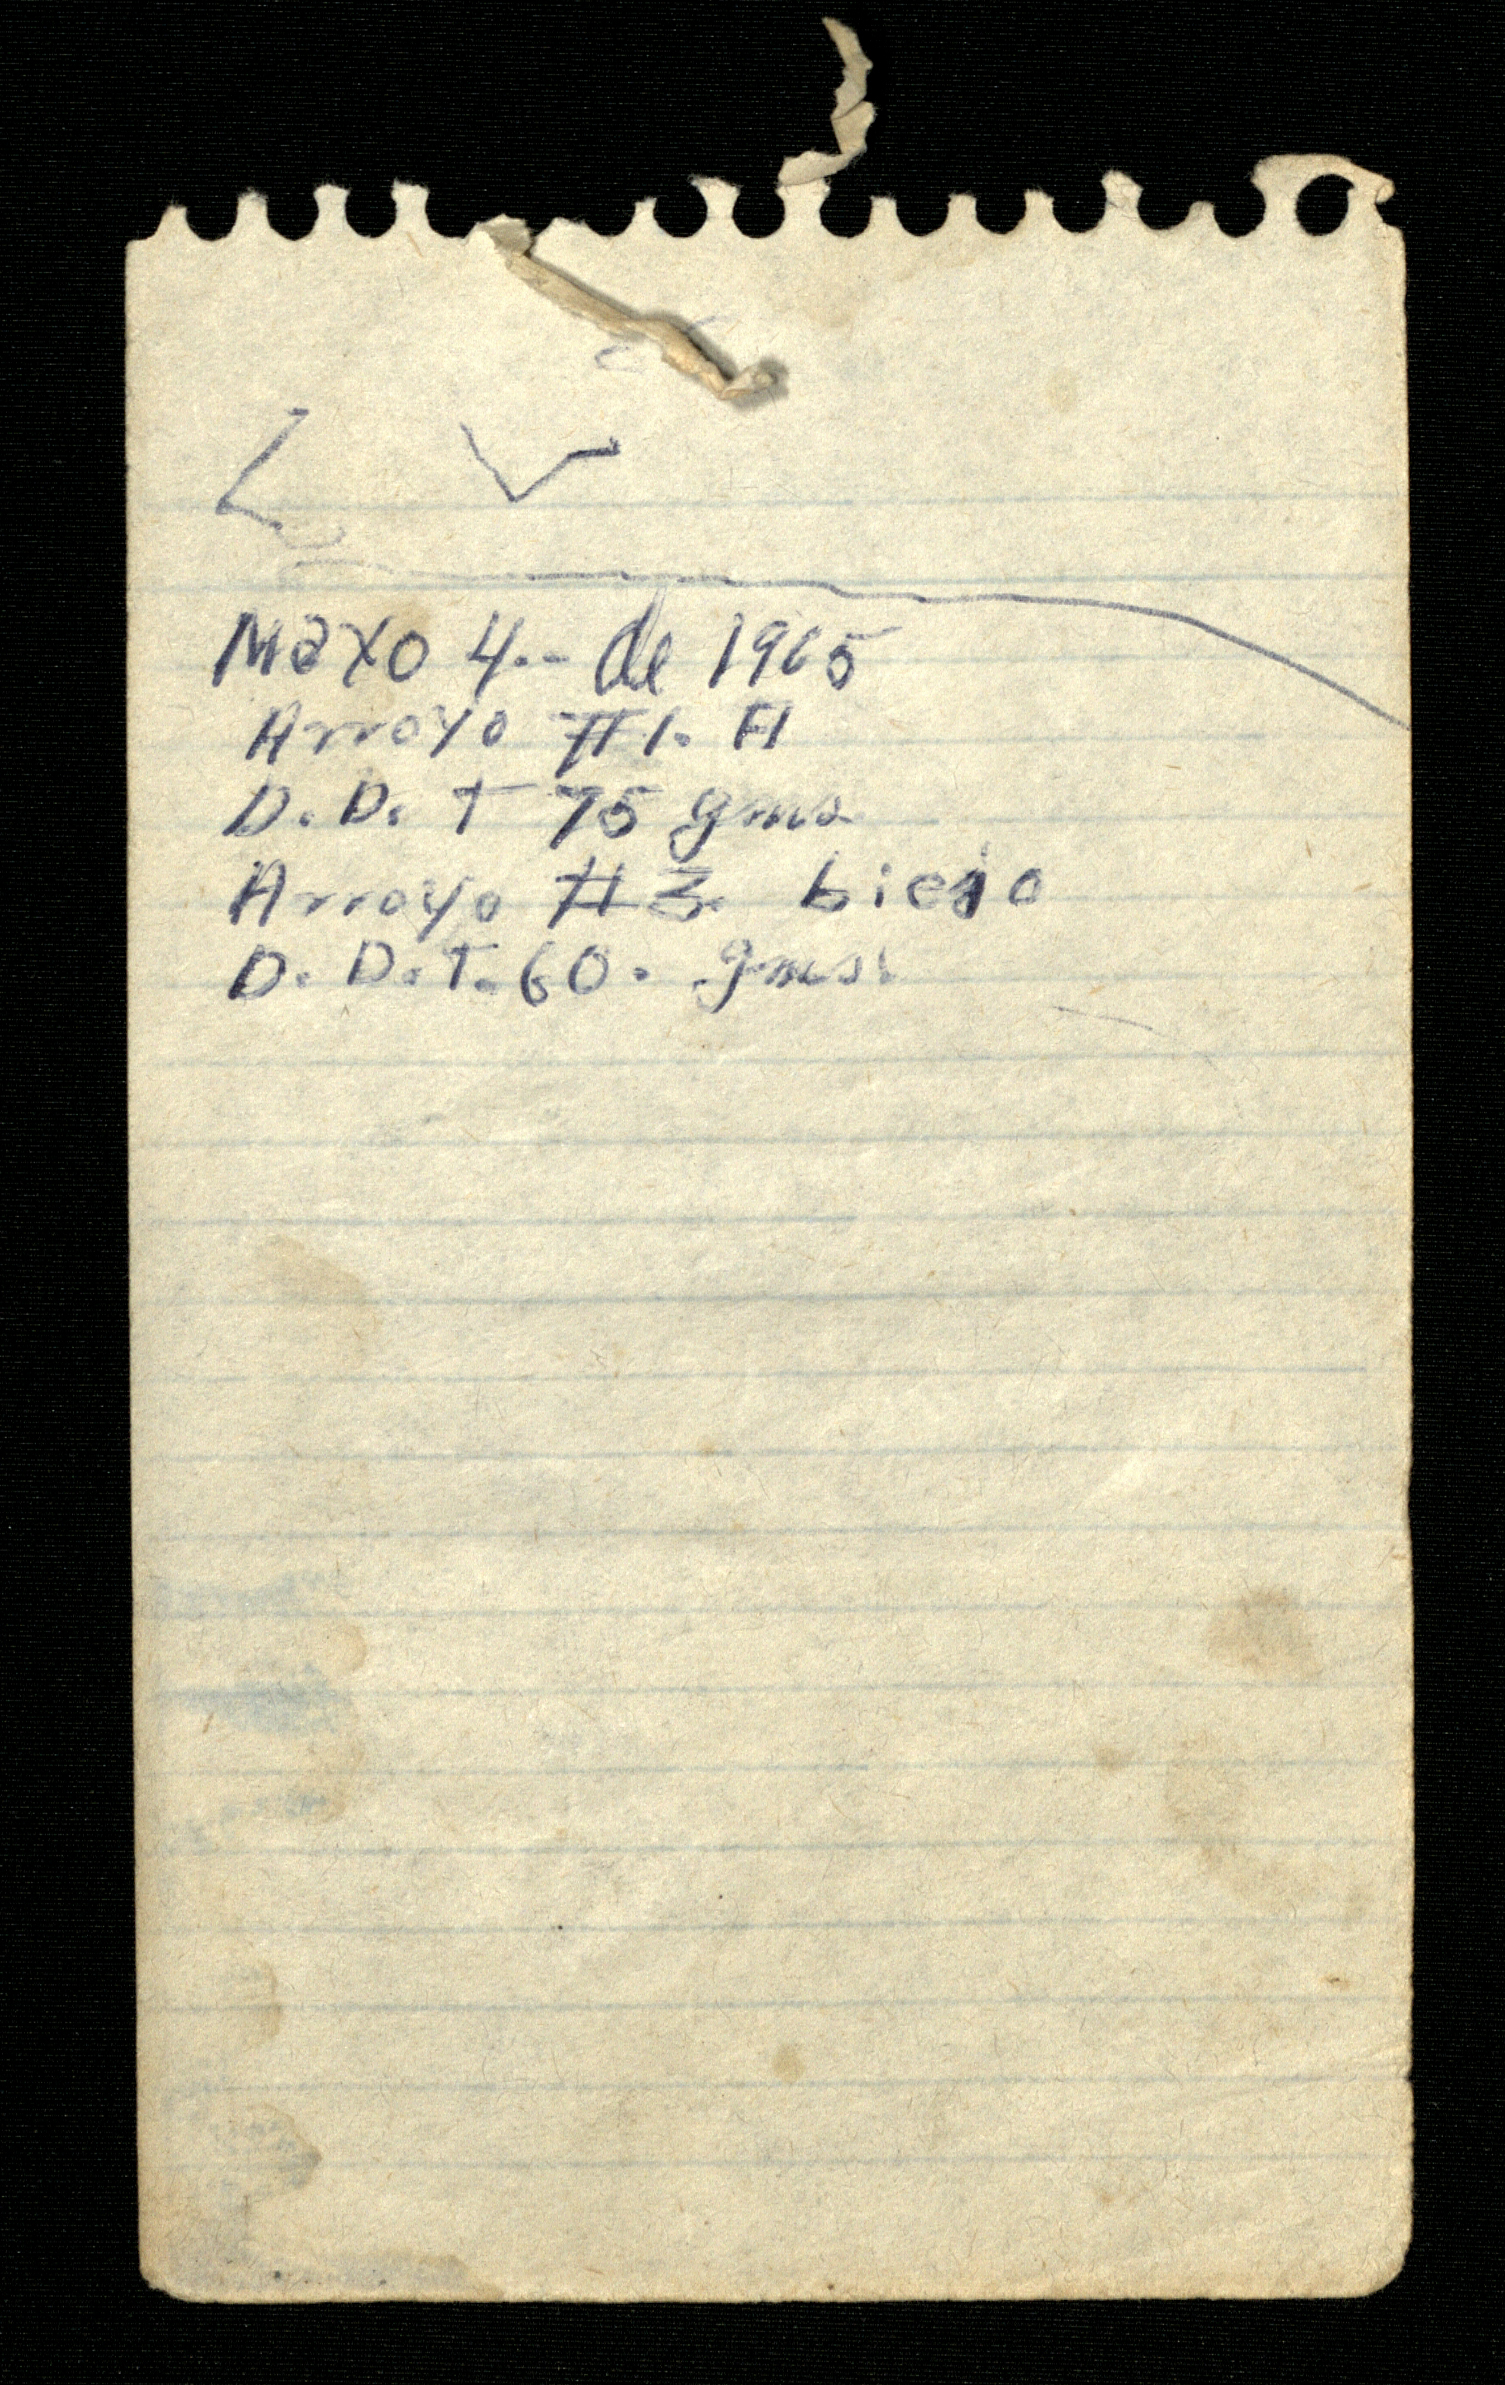 Mayo 4.- de 1965
Arroyo #1. A
D. D. T 75 gms.
Arroyo #3. biejo
D. D. T. 60. gms.